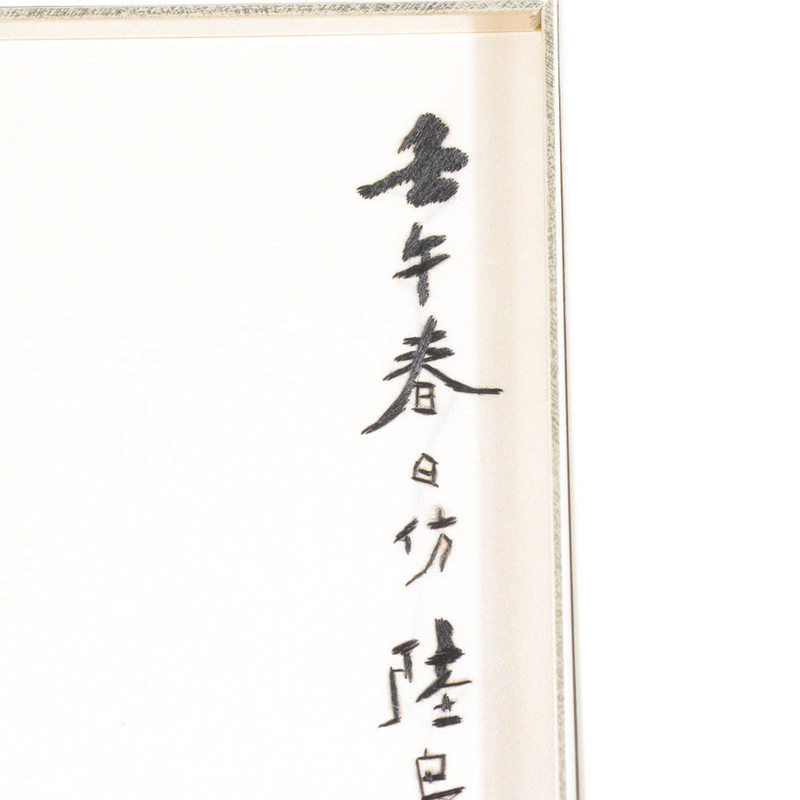 壬午春日仿陸